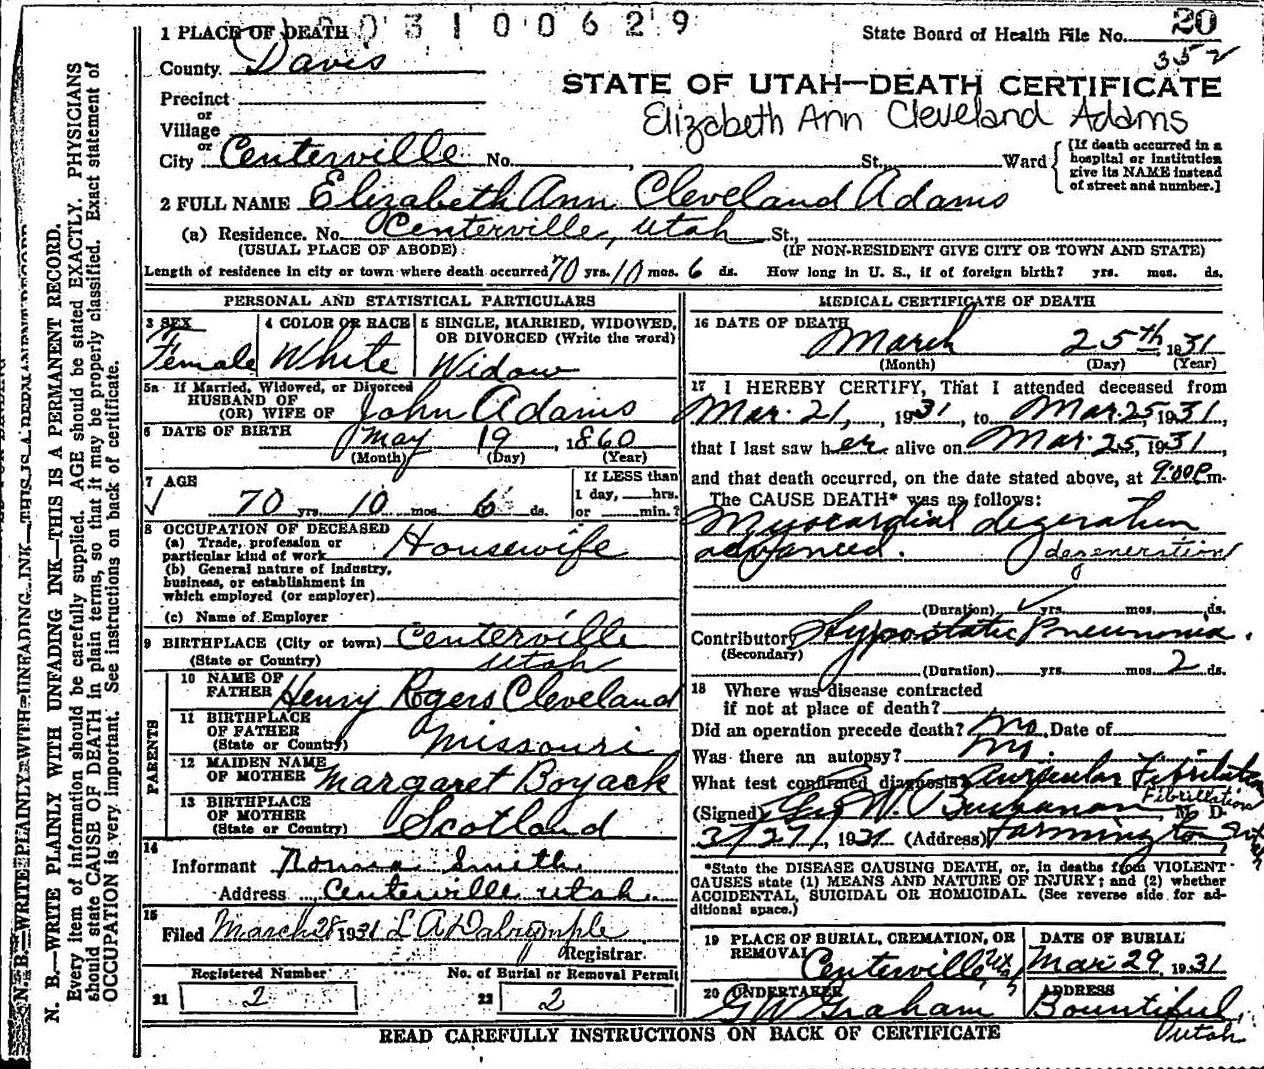 1 PLACE OF DEATH 0 3 1 0 0 6 2 9
State Board of Health File No. 20
352
County Davis
STATE OF UTAH—DEATH CERTIFICATE
Precinct
or
Village
Elizabeth Ann Cleveland Adams
or
City Centerville No. , St., Ward
[If death occurred in a hospital or institution give its NAME instead of street and number.]
2 FULL NAME Elizabeth Ann Cleveland Adams
(a) Residence. No. Centerville, Utah St.,
(USUAL PLACE OF ABODE) (IF NON-RESIDENT GIVE CITY OR TOWN AND STATE)
Length of residence in city or town where death occurred 70 yrs. 10 mos. 6 ds. How long in U. S., if of foreign birth? yrs. mos. ds.
PERSONAL AND STATISTICAL PARTICULARS
3 SEX Female
4 COLOR OR RACE White
5 SINGLE, MARRIED, WIDOWED, OR DIVORCED (Write the word) Widow
5a If Married, Widowed, or Divorced
HUSBAND OF
(OR) WIFE OF John Adams
6 DATE OF BIRTH May 19, 1860
(Month) (Day) (Year)
7 AGE
70 yrs. 10 mos. 6 ds.
If LESS than
1 day, hrs.
or min.?
8 OCCUPATION OF DECEASED
(a) Trade, profession or
particular kind of work Housewife
(b) General nature of industry,
business, or establishment in
which employed (or employer)
(c) Name of Employer
9 BIRTHPLACE (City or town) Centerville
(State or Country) Utah
PARENTS
10 NAME OF
FATHER Henry Rogers Cleveland
11 BIRTHPLACE
OF FATHER
(State or Country) Missouri
12 MAIDEN NAME
OF MOTHER Margaret Boyack
13 BIRTHPLACE
OF MOTHER
(State or Country) Scotland
14
Informant Smith
Address Centerville Utah
15
Filed March 28 1931 L A Dalrymple
Registrar.
Registered Number No. of Burial or Removal Permit
21 2 22 2
MEDICAL CERTIFICATE OF DEATH
16 DATE OF DEATH
March 25th, 1931
(Month) (Day) (Year)
17 I HEREBY CERTIFY, That I attended deceased from
Mar. 21, 1931, to Mar. 25, 1931,
that I last saw her alive on Mar. 25, 1931,
and that death occurred, on the date stated above, at 9:00 P.m.
The CAUSE DEATH* was as follows:
Myocardial degeration
advanced. degeneration
(Duration) yrs. mos. ds.
Contributory Hypostatic Pneumonia.
(Secondary)
(Duration) yrs. mos. 2 ds.
18 Where was disease contracted
if not at place of death?
Did an operation precede death? No. Date of
Was there an autopsy? No.
What test confirmed diagnosis? Auricular Fibrilation
Fibrillation
(Signed) Geo W. Buchanan, M. D.
3/27/, 1931 (Address) Farmington Utah
*State the DISEASE CAUSING DEATH, or, in deaths from VIOLENT
CAUSES state (1) MEANS AND NATURE OF INJURY; and (2) whether
ACCIDENTAL, SUICIDAL OR HOMICIDAL. (See reverse side for ad-
ditional space.)
19 PLACE OF BURIAL, CREMATION, OR
REMOVAL Centerville Utah
DATE OF BURIAL
Mar 29, 1931
20 UNDERTAKER
G W Graham
ADDRESS
Bountiful,
Utah
READ CAREFULLY INSTRUCTIONS ON BACK OF CERTIFICATE
N. B.—WRITE PLAINLY WITH UNFADING INK—THIS IS A PERMANENT RECORD.
Every item of information should be carefully supplied. AGE should be stated EXACTLY. PHYSICIANS
should state CAUSE OF DEATH in plain terms, so that it may be properly classified. Exact statement of
OCCUPATION is very important. See instructions on back of certificate.